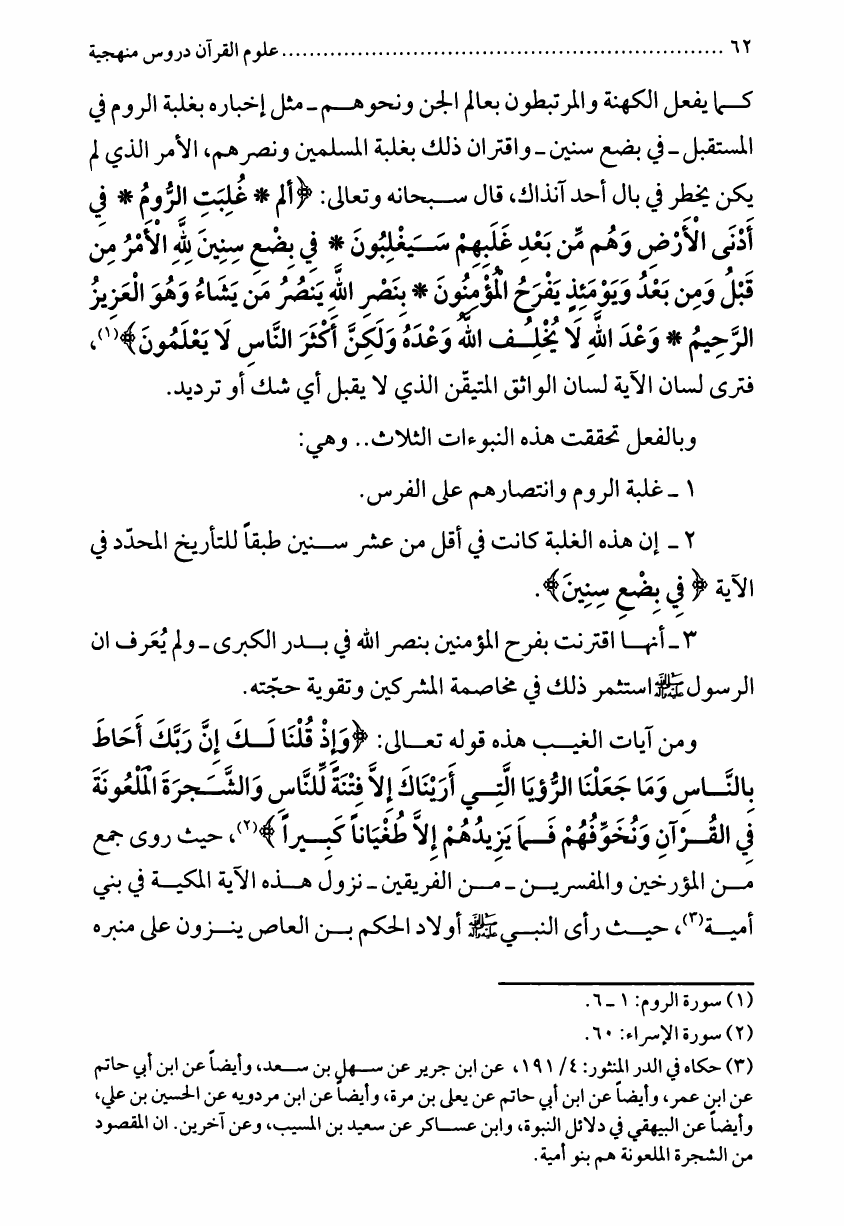 ٦٢ ................................................................ علوم القرآن دروس منهجية
كما يفعل الكهنة والمرتبطون بعالم الجن ونحوهم ـ مثل إخباره بغلبة الروم في
المستقبل ـ في بضع سنين ـ واقتران ذلك بغلبة المسلمين ونصرهم، الأمر الذي لم
يكن يخطر في بال أحد آنذاك، قال سبحانه وتعالى: ﴿ألم * غُلِبَتِ الرُّومُ * فِي
أَدْنَى الْأَرْضِ وَهُم مِّن بَعْدِ غَلَبِهِمْ سَيَغْلِبُونَ * فِي بِضْعِ سِنِينَ لِلَّهِ الْأَمْرُ مِن
قَبْلُ وَمِن بَعْدُ وَيَوْمَئِذٍ يَفْرَحُ الْمُؤْمِنُونَ * بِنَصْرِ اللَّهِ يَنصُرُ مَن يَشَاءُ وَهُوَ الْعَزِيزُ
الرَّحِيمُ * وَعْدَ اللَّهِ لَا يُخْلِفُ اللهُ وَعْدَهُ وَلَكِنَّ أَكْثَرَ النَّاسِ لَا يَعْلَمُونَ﴾(١)،
فترى لسان الآية لسان الواثق المتيقّن الذي لا يقبل أي شك أو ترديد.
وبالفعل تحققت هذه النبوءات الثلاث.. وهي:
١ ـ غلبة الروم وانتصارهم على الفرس.
٢ ـ إن هذه الغلبة كانت في أقل من عشر سنين طبقاً للتأريخ المحدّد في
الآية ﴿ فِي بِضْعِ سِنِينَ﴾.
٣ ـ أنها اقترنت بفرح المؤمنين بنصر الله في بدر الكبرى ـ ولم يُعَرف ان
الرسول ﷺ استثمر ذلك في مخاصمة المشركين وتقوية حجّته.
ومن آيات الغيب هذه قوله تعالى: ﴿وَإِذْ قُلْنَا لَكَ إِنَّ رَبَّكَ أَحَاطَ
بِالنَّاسِ وَمَا جَعَلْنَا الرُّؤيَا الَّتِي أَرَيْنَاكَ إِلاَّ فِتْنَةً لِّلنَّاسِ وَالشَّجَرَةَ الْمَلْعُونَةَ
فِي القُرْآنِ وَنُخَوِّفُهُمْ فَمَا يَزِيدُهُمْ إِلاَّ طُغْيَاناً كَبِيراً ﴾(٢)، حيث روى جمع
من المؤرخين والمفسرين ـ من الفريقين ـ نزول هذه الآية المكية في بني
أمية(٣)، حيث رأى النبي ﷺ أولاد الحكم بن العاص ينزون على منبره
(١) سورة الروم: ١ ـ ٦.
(٢) سورة الإسراء: ٦٠.
(٣) حكاه في الدر المنثور: ٤/ ١٩١، عن ابن جرير عن سهل بن سعد، وأيضاً عن ابن أبي حاتم
عن ابن عمر، وأيضاً عن ابن أبي حاتم عن يعلى بن مرة، وأيضاً عن ابن مردويه عن الحسين بن علي،
وأيضاً عن البيهقي في دلائل النبوة، وابن عساكر عن سعيد بن المسيب، وعن آخرين. ان المقصود
من الشجرة الملعونة هم بنو أمية.